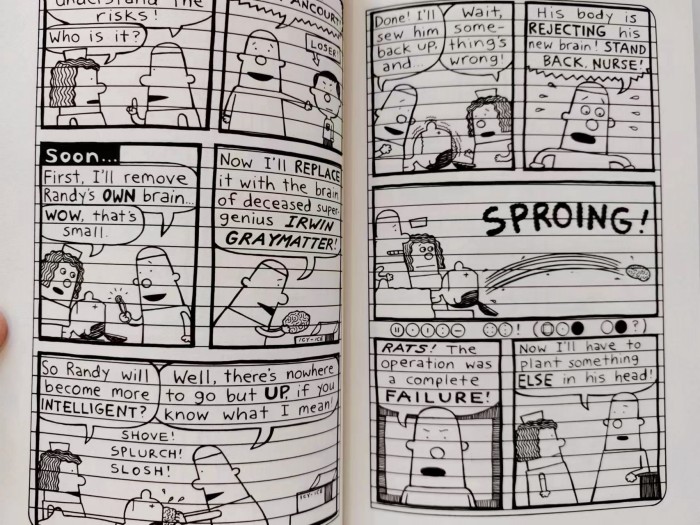 understand the
risks!
Who is it?
ANCOURT
LOSER!
Soon...
First, I'll remove
Randy's OWN brain...
WOW, that's
small.
Now I'll REPLACE
it with the brain
of deceased super-
genius IRWIN
GRAYMATTER!
ICY-ICE
So Randy will
become more
INTELLIGENT?
Well, there's nowhere
to go but UP, if you
know what I mean!
SHOVE!
SPLURCH!
SLOSH!
ICY-ICE
Done! I'll
sew him
back up,
and...
Wait,
some-
thing's
wrong!
His body is
REJECTING his
new brain! STAND
BACK, NURSE!
SPROING!
RATS! The
operation was
a complete
FAILURE!
Now I'll have to
plant something
ELSE in his head!